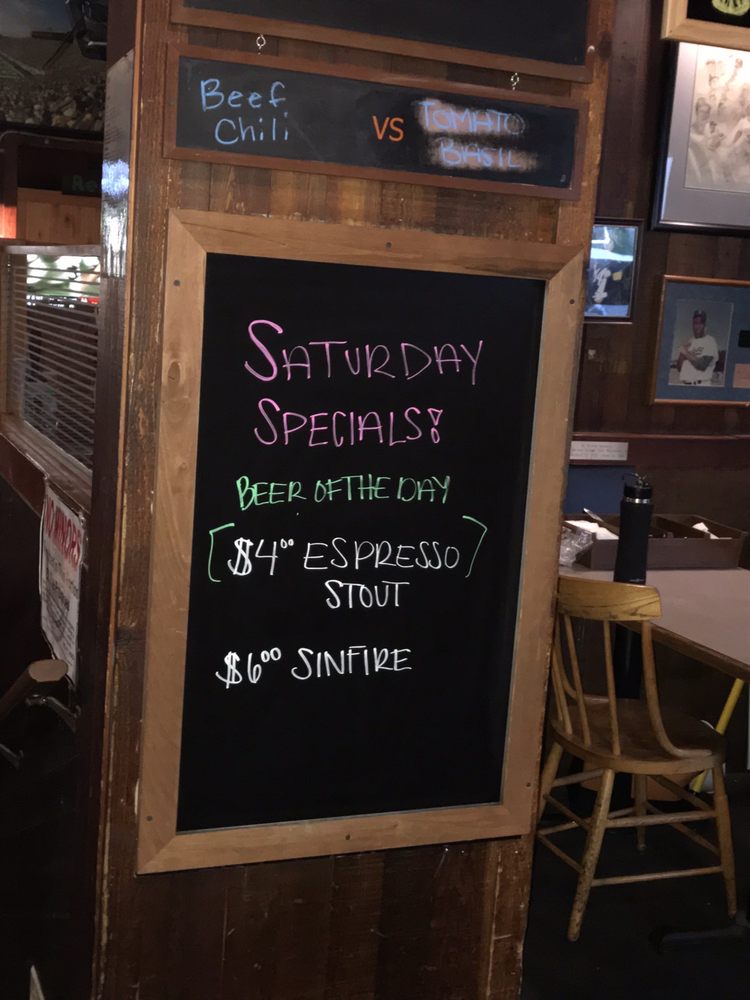 Beef
Chili
VS
TOMATO
BASIL
SATURDAY
SPECIALS!
BEER OF THE DAY
$4⁰⁰ ESPRESSO
STOUT
$6⁰⁰ SINFIRE
NO MINORS